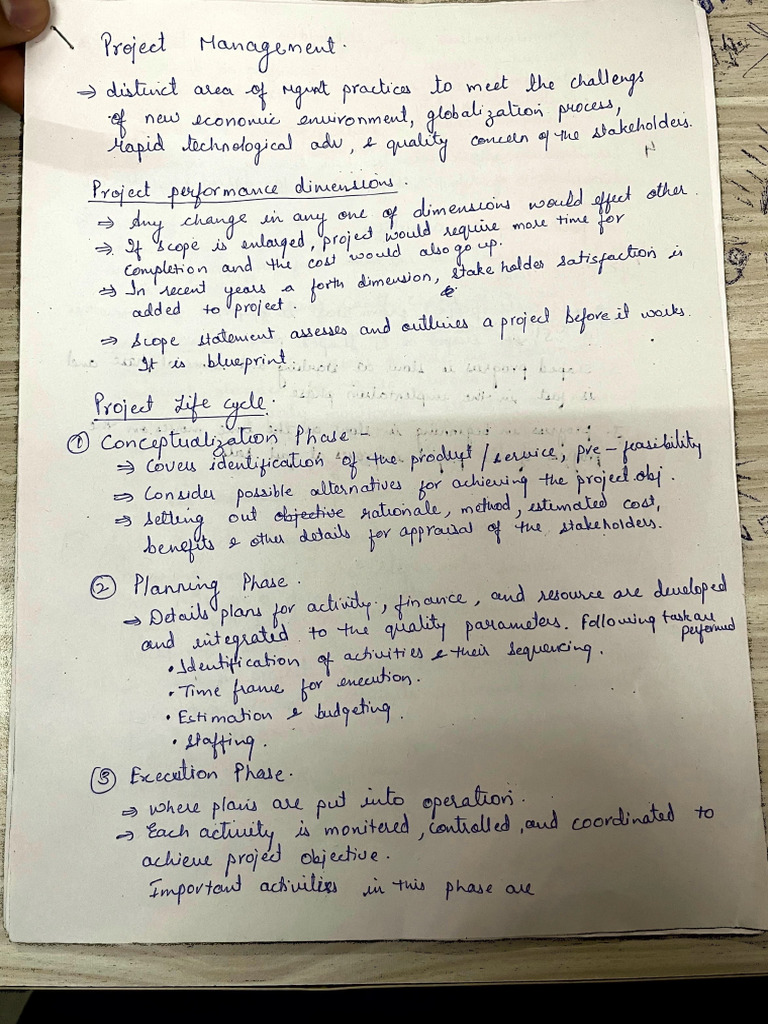 Project Management.
⇒ distinct area of mgmt practices to meet the challengs
of new economic environment, globalization process,
rapid technological adv, & quality concern of the stakeholders.
Project performance dimensions.
⇒ Any change in any one of dimensions would effect other.
⇒ If scope is enlarged, project would require more time for
completion and the cost would also go up.
⇒ In recent years a forth dimension, stake holder satisfaction is
added to project.
⇒ Scope statement assesses and outlines a project before it works.
It is blueprint.
Project Life cycle.
① Conceptualization Phase -
⇒ Covers identification of the product / service, pre-feasibility
⇒ Consider possible alternatives for achieving the project obj.
⇒ Setting out objective rationale, method, estimated cost,
benefits & other details for appraisal of the stakeholders.
② Planning Phase.
→ Details plans for activity, finance, and resource are developed
and integrated to the quality parameters. Following task are
performed
• Identification of activities & their sequencing.
• Time frame for execution.
• Estimation & budgeting.
• Staffing.
③ Execution Phase.
⇒ where plans are put into operation.
⇒ Each activity is monitered, controlled, and coordinated to
achieve project objective.
Important activities in this phase are